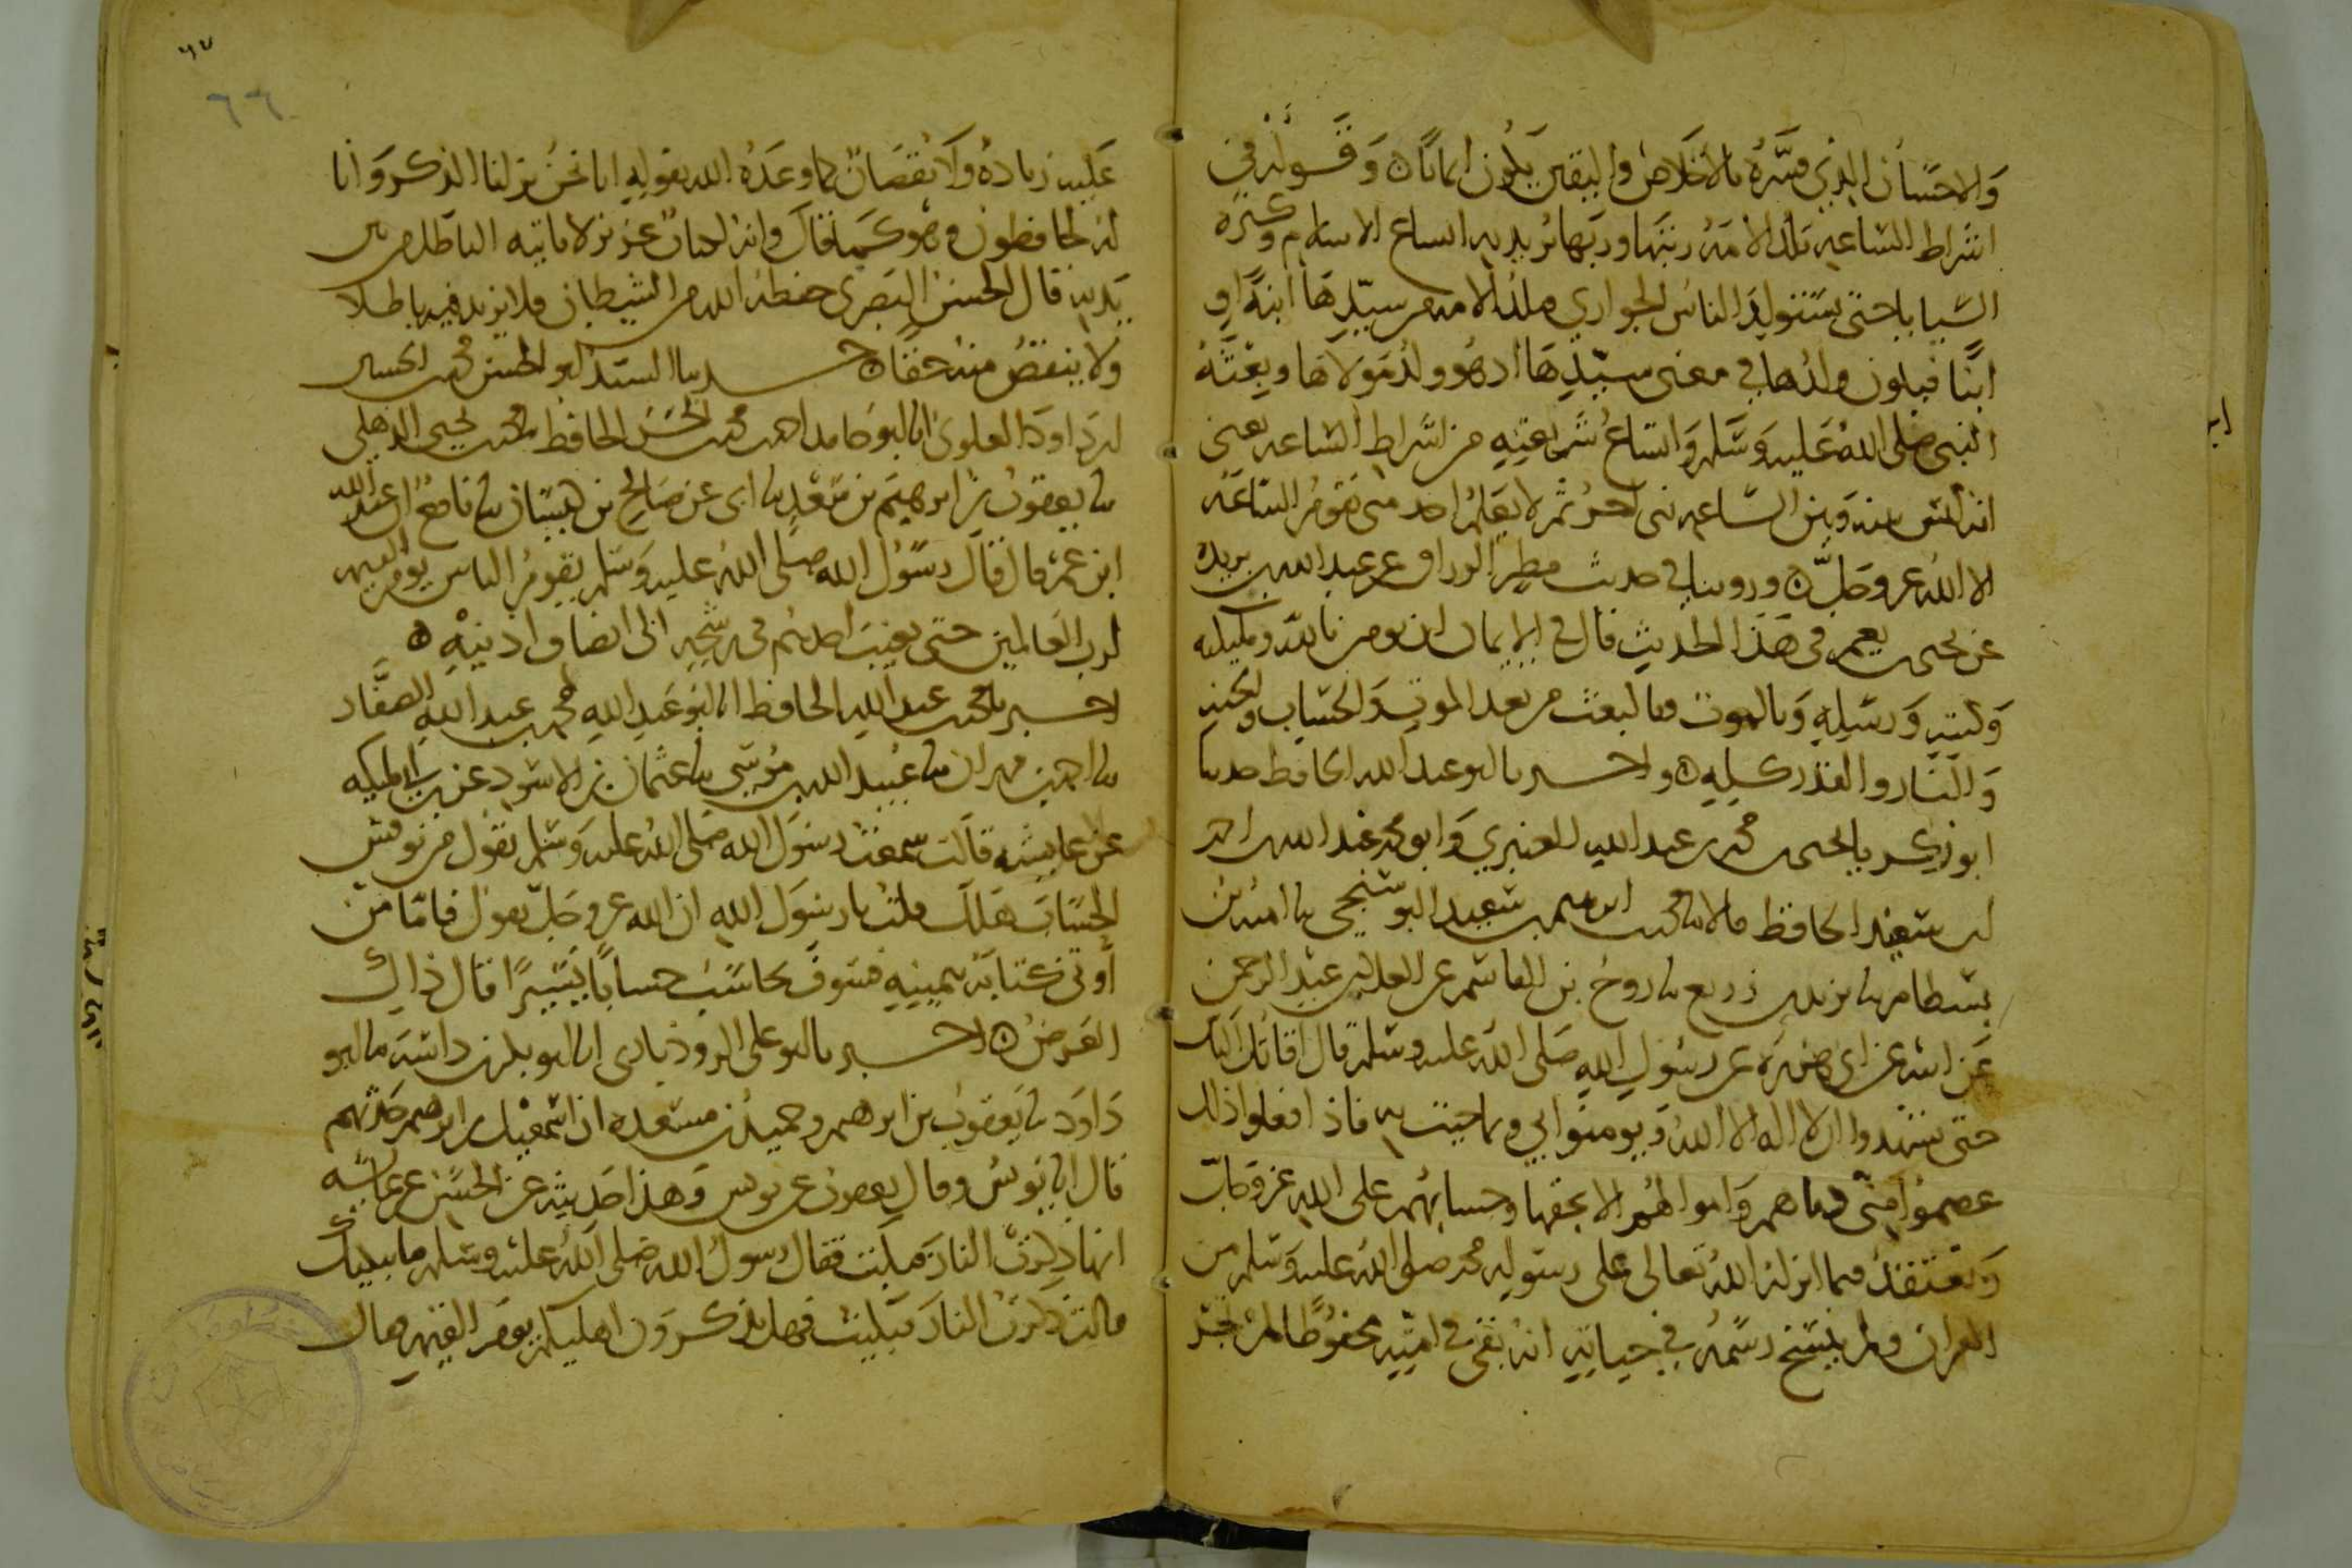 والاحسان الذي فسره بالاخلاص واليقين يكون ايمانا ٥ وقوله في
اشراط الساعة تلد الامة ربتها وربها يريد به اتساع الاسلام وكثرة
السبايا حتى يستولد الناس الجواري فتلد الامة من سيدها ابنة او
ابنا فيكون ولدها في معنى سيدها اذ هو ولد مولاها وبعثة
النبي صلى الله عليه وسلم واتساع شريعته من اشراط الساعة يعني
انه ليس بينه وبين الساعة نبي اخر ثم لا يعلم احد متى تقوم الساعة
الا الله عز وجل ٥ وروينا في حديث مطر الوراق عن عبد الله بن بريدة
عن يحيى بن يعمر في هذا الحديث قال في الايمان ان تومن بالله وملئكته
وكتبه ورسله وبالموت وبالبعث من بعد الموت والحساب والجنة
والنار والقدر كله ٥ واخبرنا ابو عبد الله الحافظ حدثنا
ابو زكريا يحيى بن محمد بن عبد الله العنبري وابو محمد عبد الله بن احمد
ابن سعيد الحافظ قالا ثنا محمد بن ابرهيم بن سعيد البوسنجي ثنا امية بن
بسطام ثنا يزيد بن زريع ثنا روح بن القاسم عن العلا بن عبد الرحمن
عن ابيه عن ابي هريرة عن رسول الله صلى الله عليه وسلم قال اقاتل الناس
حتى يشهدوا ان لا اله الا الله ويومنوا بي وبما جيت به فاذا فعلوا ذلك
عصموا مني دماهم واموالهم الا بحقها وحسابهم على الله عز وجل
ويعتقد فيما انزله الله تعالى على رسوله محمد صلى الله عليه وسلم من
القران ولم ينسخ رسمه في حياته انه بقي في امته محفوظا لم تجر
٦٦
عليه زيادة ولا نقصان كما وعده الله بقوله انا نحن نزلنا الذكر وانا
له لحافظون وهو كما قال وانه لكتاب عزيز لا ياتيه الباطل من بين
يديه قال الحسن البصري حفظه الله من الشيطان فلا يزيد فيه باطلا
ولا ينقص منه حقا ٥ حدثنا السيد ابو الحسن محمد بن الحسين
ابن داود العلوي انا ابو حامد احمد بن محمد بن الحسن الحافظ ثنا محمد بن يحيى الذهلي
ثنا يعقوب بن ابرهيم بن سعد ثنا ابي عن صالح بن كيسان ثنا نافع ان عبد الله
ابن عمر قال قال رسول الله صلى الله عليه وسلم يقوم الناس يوم القيمة
لرب العالمين حتى يغيب احدهم في رشحه الى انصاف اذنيه ٥
اخبرنا محمد بن عبد الله الحافظ انا ابو عبد الله محمد بن عبد الله الصفار
ثنا احمد بن مهران ثنا عبيد الله بن موسى ثنا عثمان بن الاسود عن ابن ابي مليكة
عن عايشة قالت سمعت رسول الله صلى الله عليه وسلم يقول من نوقش
الحساب هلك قلت يا رسول الله ان الله عز وجل يقول فاما من
أوتي كتابه بيمينه فسوف يحاسب حسابا يسيرا قال ذاك
العرض ٥ اخبرنا ابو علي الروذباري انا ابو بكر بن داسة ثنا ابو
داود ثنا يعقوب بن ابرهيم وحميد بن مسعدة ان اسمعيل بن ابرهيم حدثهم
قال انا يونس وقال يعقوب عن يونس وهذا حديثه عن الحسن عن عايشة
انها ذكرت النار فبكت فقال رسول الله صلى الله عليه وسلم ما يبكيك
قالت ذكرت النار فبكيت فهل تذكرون اهليكم يوم القيمة قال